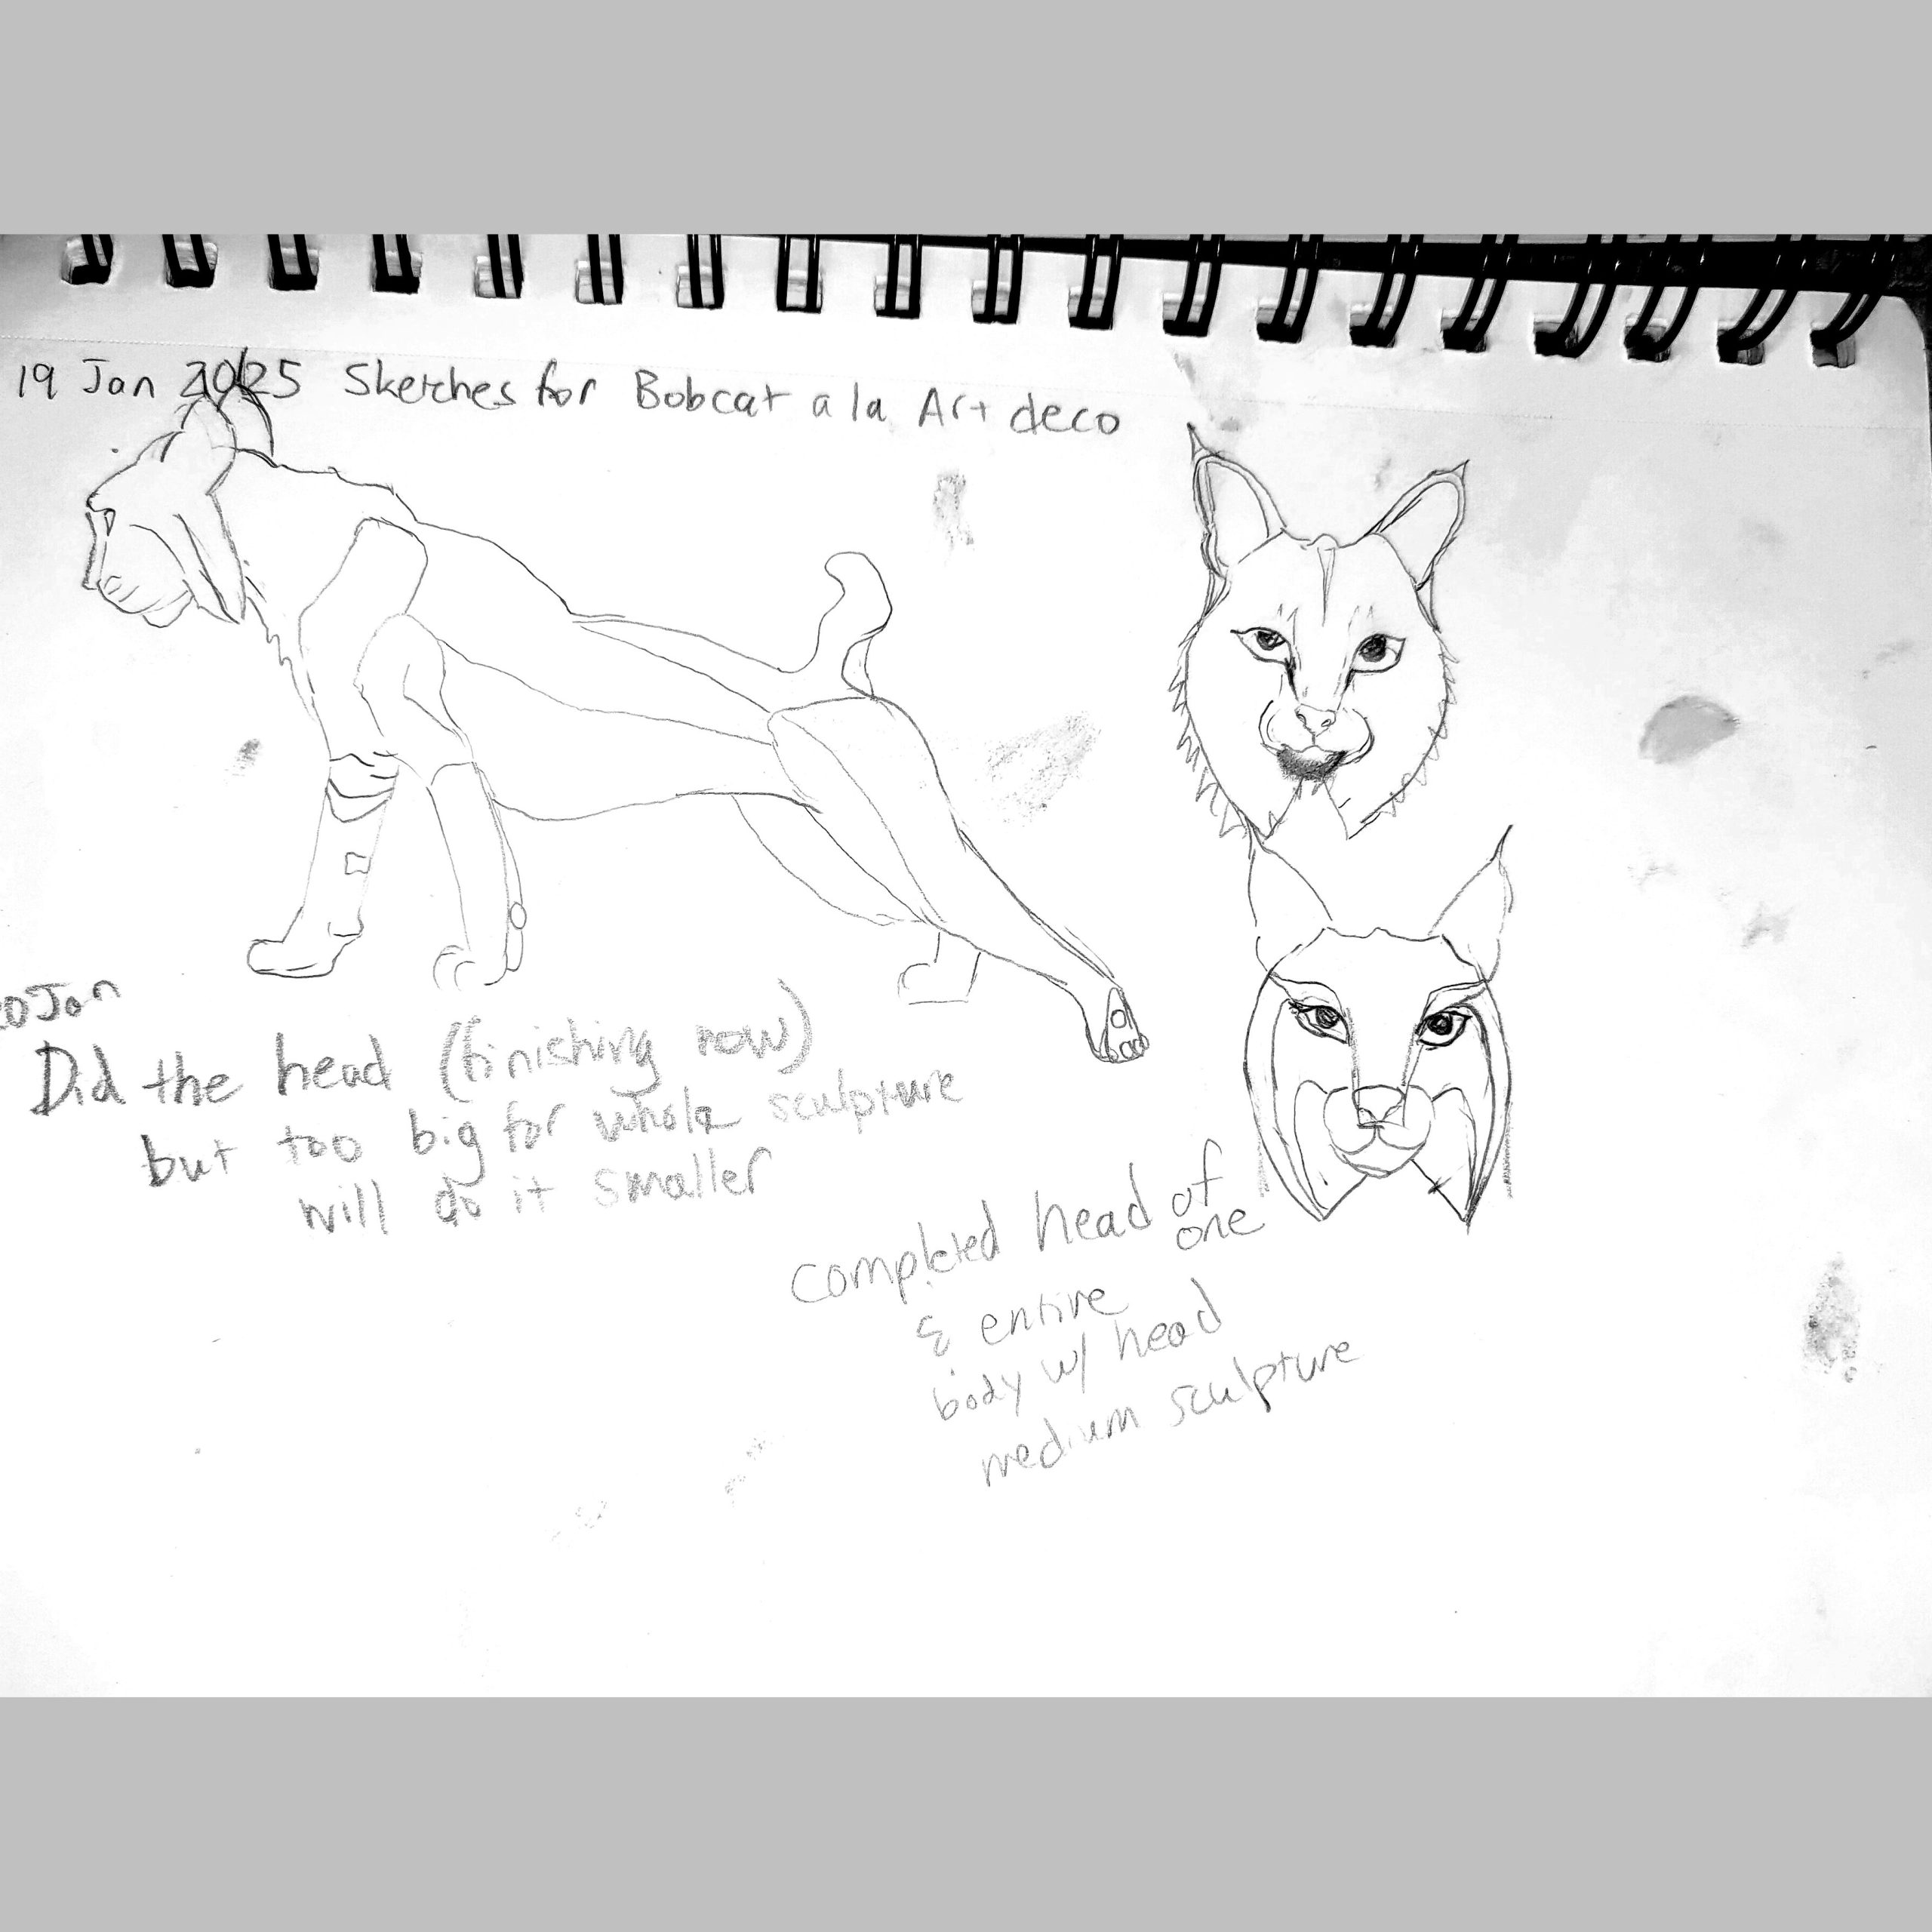 19 Jan 2025 Sketches for Bobcat a la Art deco
20 Jan
Did the head (finishing now)
but too big for whole sculpture
will do it smaller
completed head of
one
& entire
body w/ head
medium sculpture